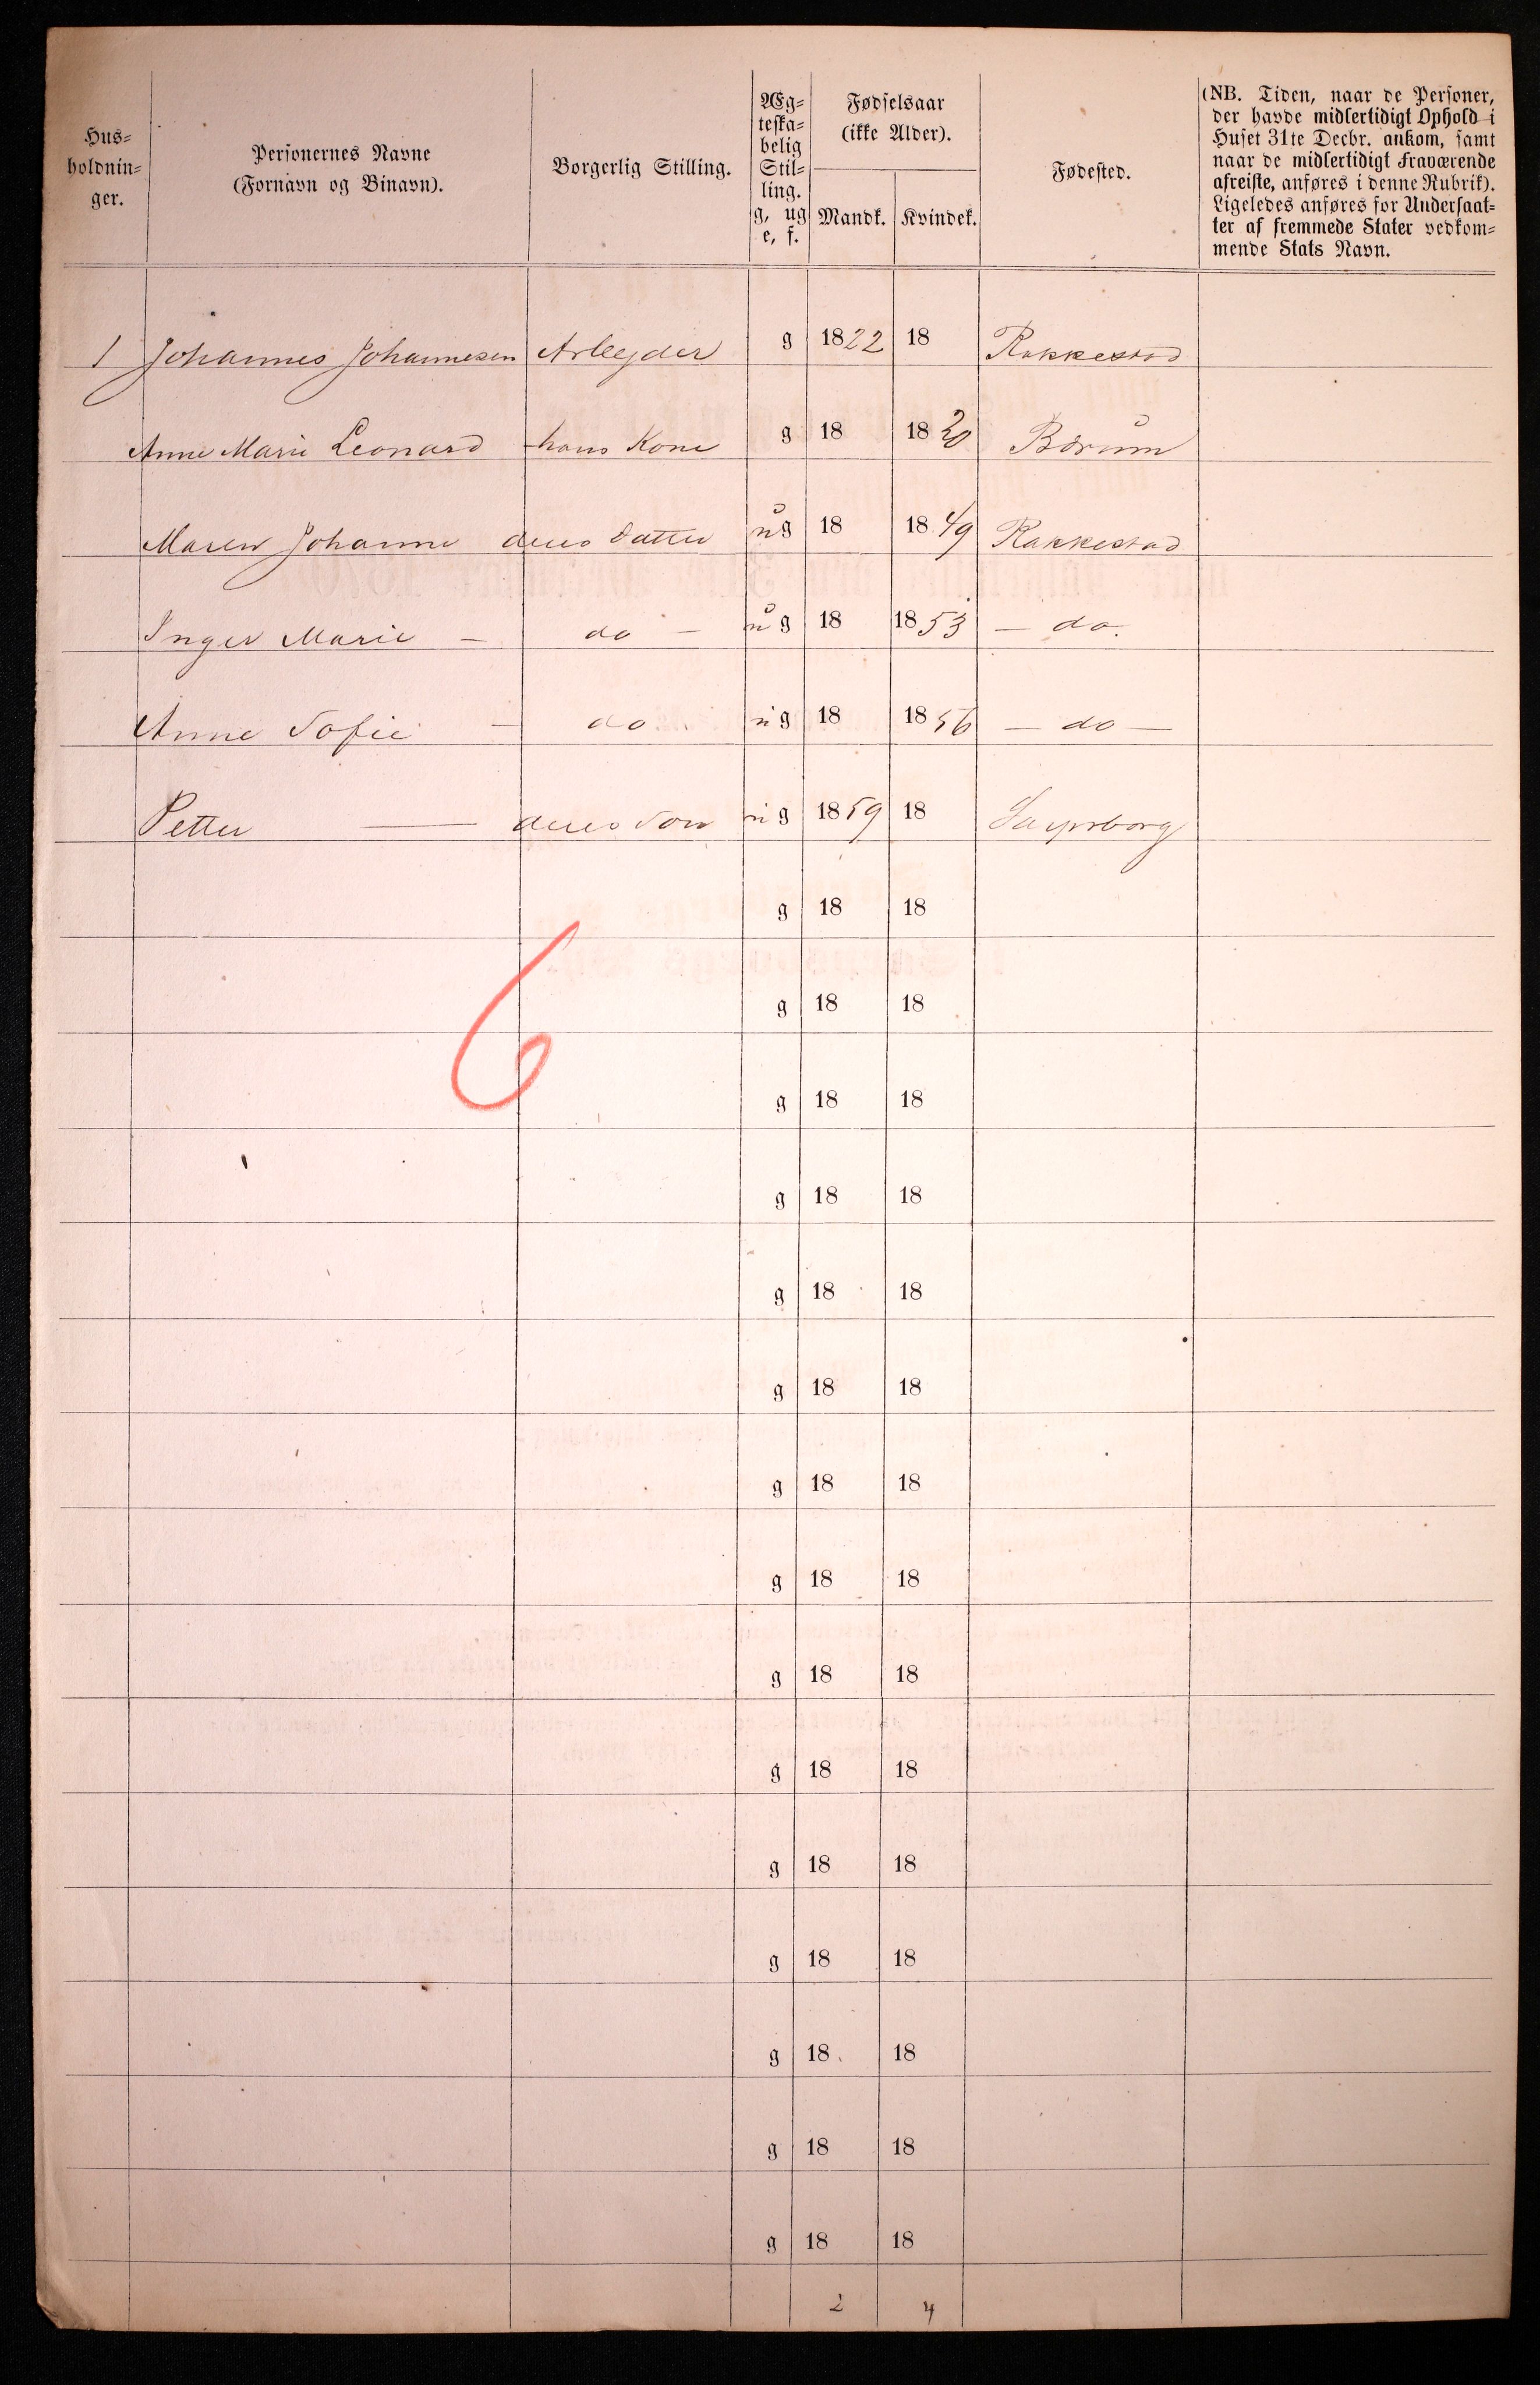 Hus-
holdnin-
ger.
Personernes Navne
(Fornavn og Binavn).
Borgerlig Stilling.
Æg-
teska-
belig
Stil-
ling.
g, ug
e, f.
Fødselsaar
(ikke Alder).
Mandk. Kvindek.
Fødested.
(NB. Tiden, naar de Personer,
der havde midlertidigt Ophold i
Huset 31te Decbr. ankom, samt
naar de midlertidigt Fraværende
afreiste, anføres i denne Rubrik).
Ligeledes anføres for Undersaat-
ter af fremmede Stater vedkom-
mende Stats Navn.
1 Johannes Johannesen Arbeyder g 1822 18 Rakkestad
Anne Marie Leonard hans Kone g 18 1820 Bærum
Maren Johanne deres Datter ug 18 1849 Rakkestad
Inger Marie — do — ug 18 1853 — do.
Anne Sofie — do ug 18 1856 — do —
Petter — deres Søn ug 1859 18 Sarpsborg
g 18 18
6
g 18 18
g 18 18
g 18 18
g 18 18
g 18 18
g 18 18
g 18 18
g 18 18
g 18 18
g 18 18
g 18 18
g 18 18
g 18 18
g 18 18
2 4